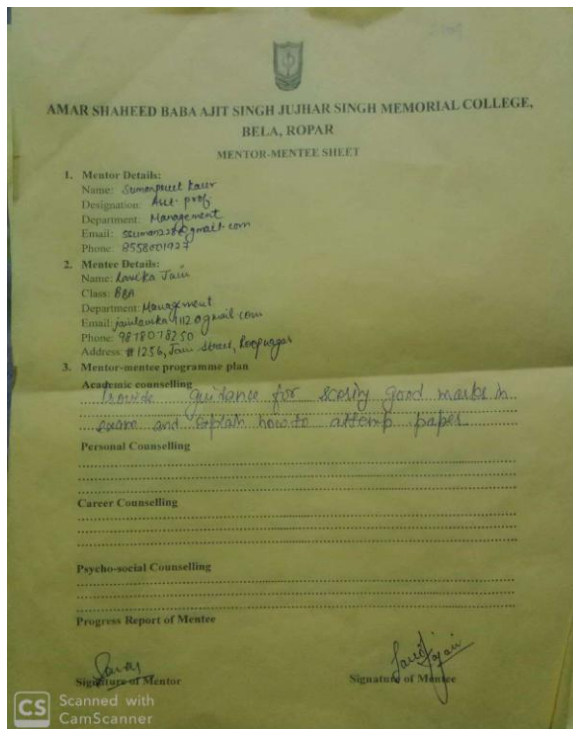 AMAR SHAHEED BABA AJIT SINGH JUJHAR SINGH MEMORIAL COLLEGE,
BELA, ROPAR
MENTOR-MENTEE SHEET
1. Mentor Details:
Name: Sumanpreet Kaur
Designation: Asst. prof.
Department: Management
Email: @gmail.com
Phone: 8558001927
2. Mentee Details:
Name: Lavika Jain
Class: BBA
Department: Management
Email: jainlavika9112@gmail.com
Phone: 9878078250
Address: #1256, Jain Street, Roopnagar
3. Mentor-mentee programme plan
Academic counselling
Provide guidance for scoring good marks in
exam and explain how to attemp paper
Personal Counselling
Career Counselling
Psycho-social Counselling
Progress Report of Mentee
Signature of Mentor Signature of Mentee
CS Scanned with
CamScanner